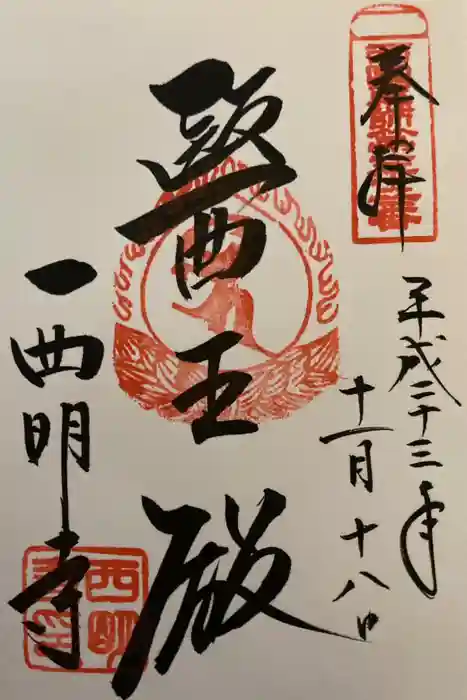 奉拝
平成二十三年
十一月十八日
醫王殿
一西明寺